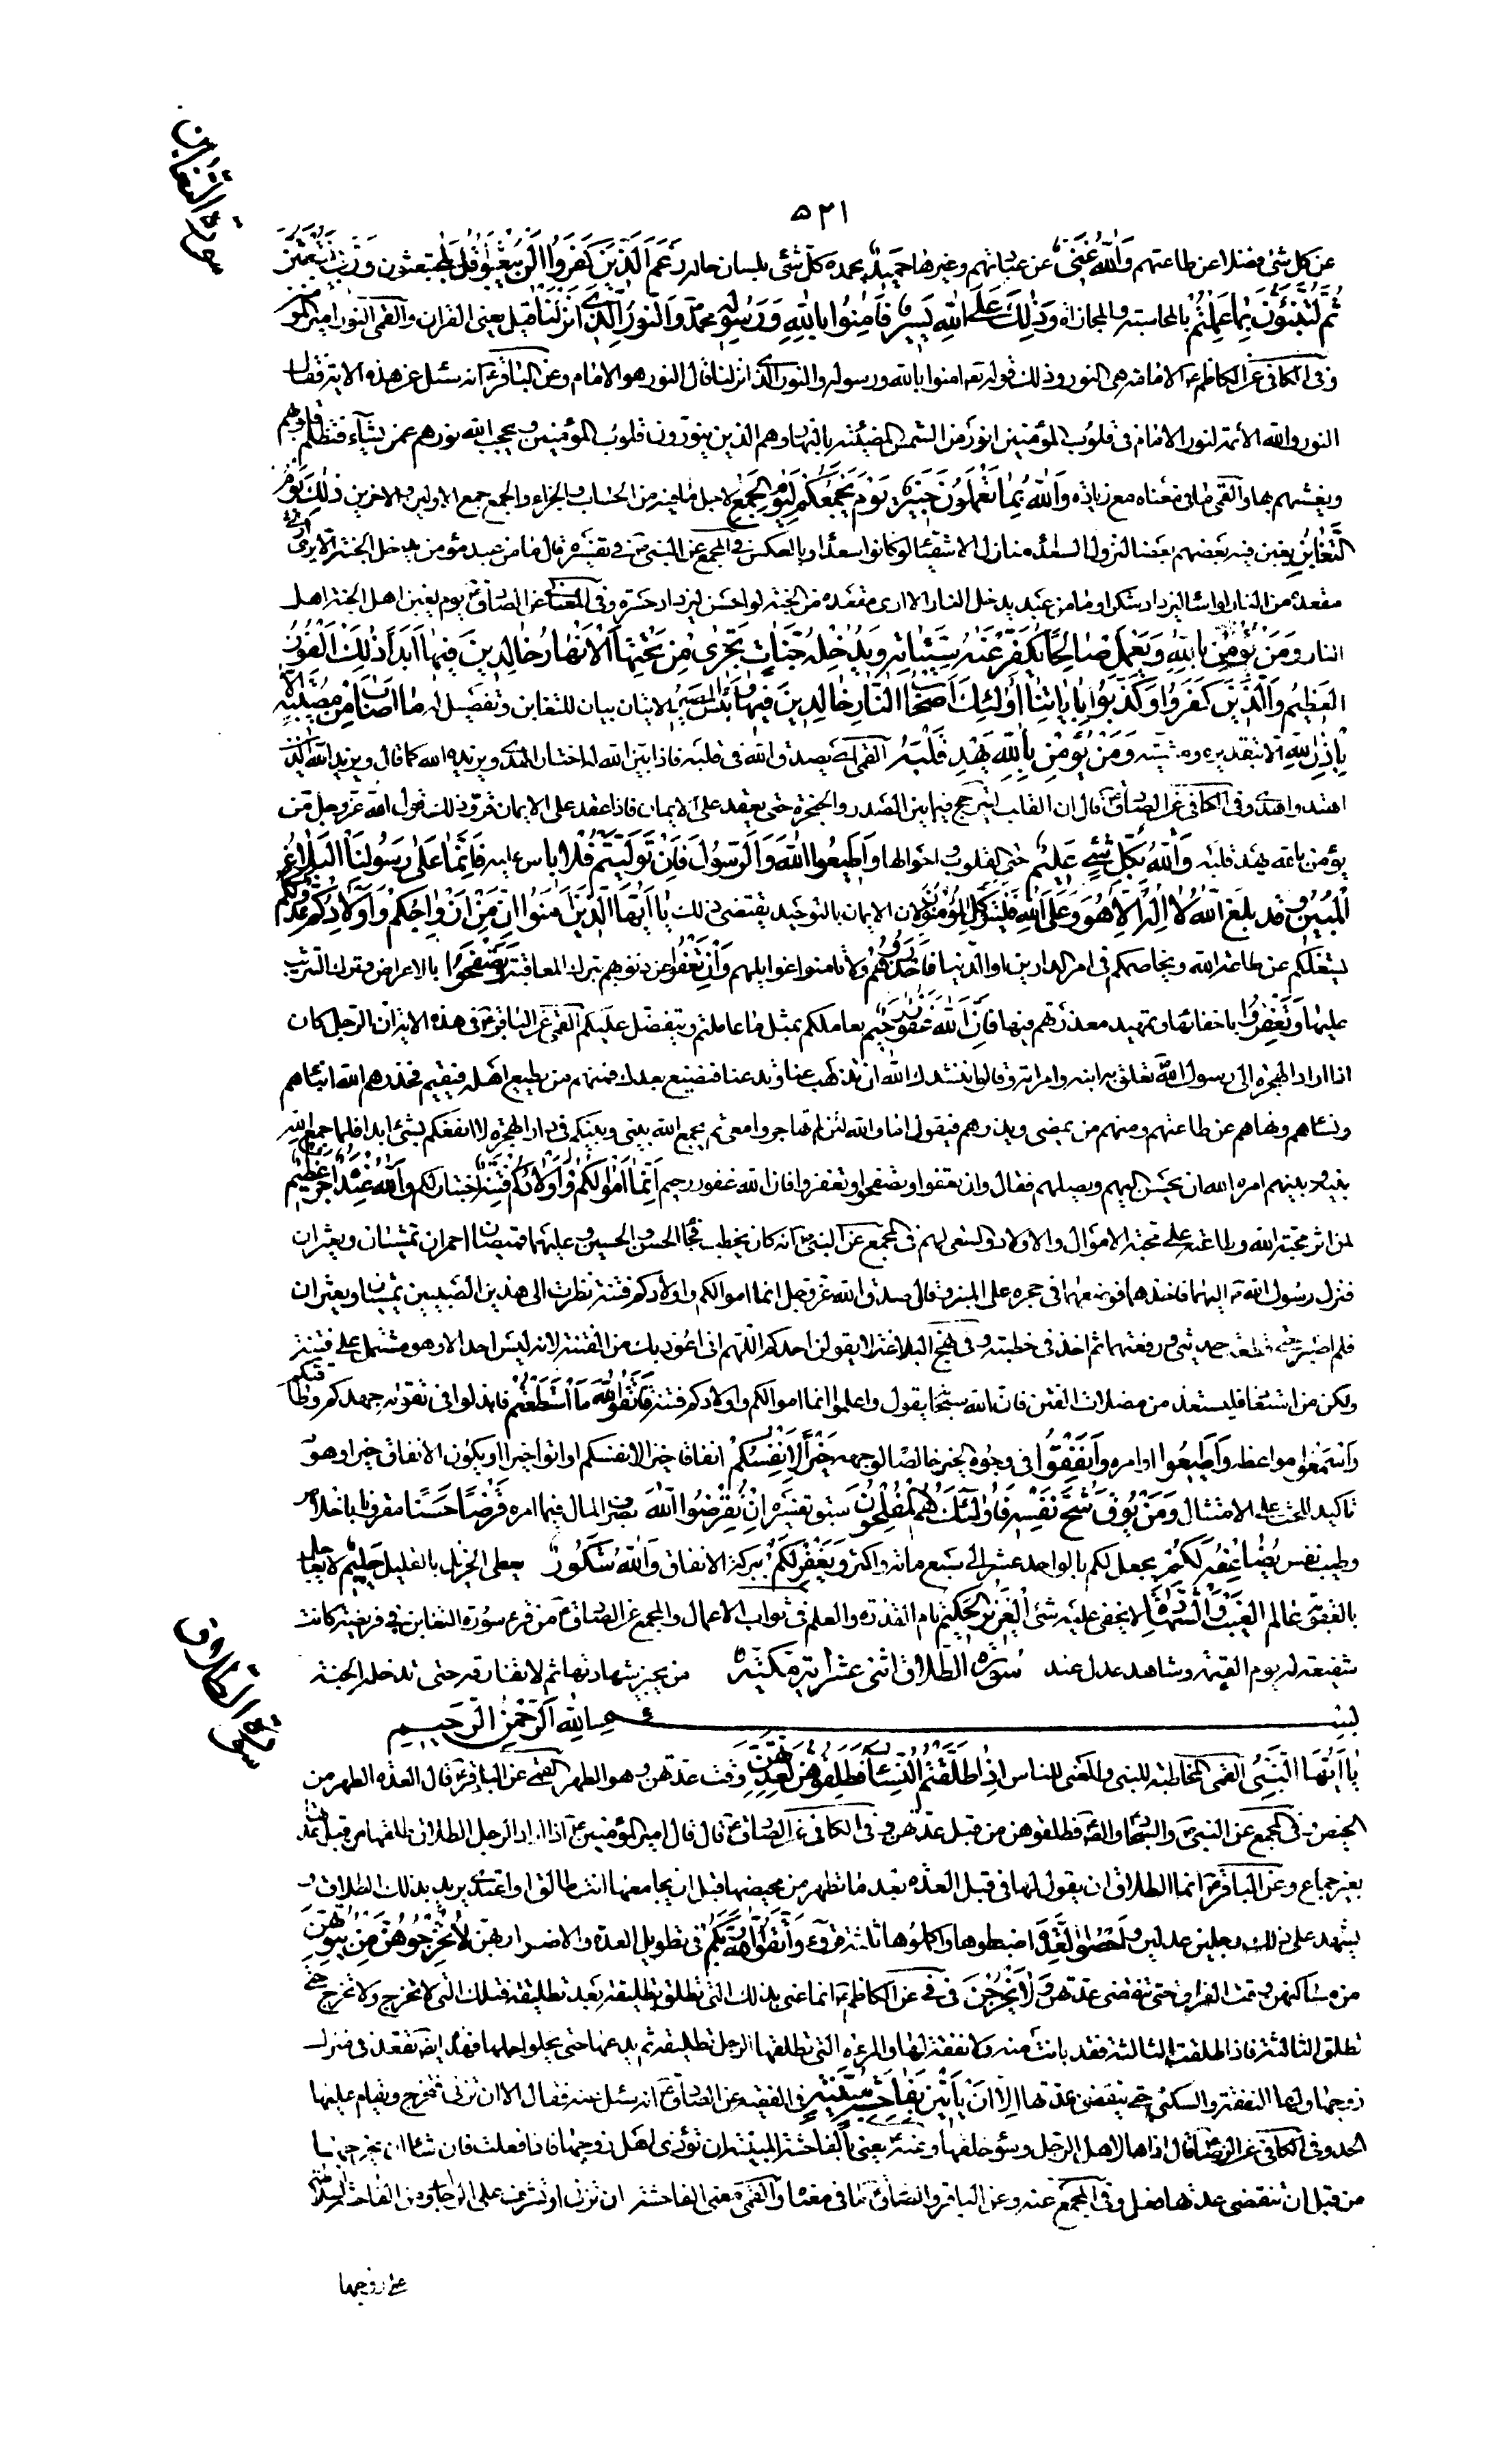 سورة التغابن
٥٢١
عن كل شئ فضلا عن طاعتهم وَاللهُ غَنِىٌّ عن عبادتهم وغيرها حَمِيدٌ يحمده كل شئ بلسان حاله زَعَمَ الَّذِينَ كَفَرُوا أَنْ لَنْ يُبْعَثُوا قُلْ بَلَى تبعثون وَرَبِّى لَتُبْعَثُنَّ
ثُمَّ لَتُنَبَّؤُنَّ بِمَا عَمِلْتُمْ بالمحاسبة والمجازاة وَذَلِكَ عَلَى اللهِ يَسِيرٌ فَآمِنُوا بِاللهِ وَرَسُولِهِ محمد وَالنُّورِ الَّذِى أَنْزَلْنَا قيل يعنى القرآن والقمى النور امير المؤمنين
وفى الكافى عن الكاظم ع الامامة هى النور وذلك قوله تعه امنوا بالله ورسوله والنور الذى انزلنا قال النور هو الامام وعن الباقر ع انه سئل عن هذه الاية فقال
النور والله الأئمة لنور الامام فى قلوب المؤمنين انور من الشمس المضيئة بالنهار وهم الذين ينورون قلوب المؤمنين ويحجب الله نورهم عمن يشاء فتظلم قلوبهم
ويغشيهم بها والقمى ما فى معناه مع زيادة وَاللهُ بِمَا تَعْمَلُونَ خَبِيرٌ يَوْمَ يَجْمَعُكُمْ لِيَوْمِ الْجَمْعِ لاجل ما فيه من الحساب والجزاء والجمع جمع الاولين والاخرين ذَلِكَ يَوْمُ
التَّغَابُنِ يغبن فيه بعضهم بعضا لنزول السعداء منازل الاشقياء لو كانوا سعداء وبالعكس فى المجمع عن النبى ص فى تفسيره قال ما من عبد مؤمن يدخل الجنة الا يرى
مقعده من النار لو اساء ليزداد شكرا وما من عبد يدخل النار الا ارى مقعده من الجنة لو احسن ليزداد حسرة وفى المعانى عن الصادق ع يوم يغبن اهل الجنة اهل
النار وَمَنْ يُؤْمِنْ بِاللهِ وَيَعْمَلْ صَالِحًا يُكَفِّرْ عَنْهُ سَيِّئَاتِهِ وَيُدْخِلْهُ جَنَّاتٍ تَجْرِى مِنْ تَحْتِهَا الْأَنْهَارُ خَالِدِينَ فِيهَا أَبَدًا ذَلِكَ الْفَوْزُ
الْعَظِيمُ وَالَّذِينَ كَفَرُوا وَكَذَّبُوا بِآيَاتِنَا أُولَئِكَ أَصْحَابُ النَّارِ خَالِدِينَ فِيهَا وَبِئْسَ الْمَصِيرُ الايتان بيان للتغابن وتفصيل له مَا أَصَابَ مِنْ مُصِيبَةٍ إِلَّا
بِإِذْنِ اللهِ الا بتقديره ومشيته وَمَنْ يُؤْمِنْ بِاللهِ يَهْدِ قَلْبَهُ القمى اى يصدق الله فى قلبه فاذا بين الله له اختار الهدى ويزيده الله كما قال ويزيد الله الذين
اهتدوا هدى وفى الكافى عن الصادق ع قال ان القلب ليترجج فيما بين الصدر والحنجرة حتى يعقد على الايمان فاذا عقد على الايمان قر وذلك قول الله عز وجل من
يؤمن بالله يهد قلبه وَاللهُ بِكُلِّ شَىْءٍ عَلِيمٌ حتى القلوب واحوالها وَأَطِيعُوا اللهَ وَأَطِيعُوا الرَّسُولَ فَإِنْ تَوَلَّيْتُمْ فلا باس عليه فَإِنَّمَا عَلَى رَسُولِنَا الْبَلَاغُ
الْمُبِينُ وقد بلغ اللهُ لَا إِلَهَ إِلَّا هُوَ وَعَلَى اللهِ فَلْيَتَوَكَّلِ الْمُؤْمِنُونَ لان الايمان بالتوحيد يقتضى ذلك يَا أَيُّهَا الَّذِينَ آمَنُوا إِنَّ مِنْ أَزْوَاجِكُمْ وَأَوْلَادِكُمْ عَدُوًّا لَكُمْ
يشغلكم عن طاعة الله ويخاصمكم فى امر الدين او الدنيا فَاحْذَرُوهُمْ ولا تامنوا غوايلهم وَإِنْ تَعْفُوا عن ذنوبهم بترك المعاقبة وَتَصْفَحُوا بالاعراض وترك التثريب
عليها وَتَغْفِرُوا باخفائها وتمهيد معذرتهم فيها فَإِنَّ اللهَ غَفُورٌ رَحِيمٌ يعاملكم بمثل ما عاملتم ويتفضل عليكم القمى عن الباقر ع فى هذه الاية ان الرجل كان
اذا اراد الهجرة الى رسول الله ص تعلق به ابنه وامراته وقالوا ننشدك الله ان تذهب عنا وتدعنا فنضيع بعدك فمنهم من يطيع اهله فيقيم فحذرهم الله ابناءهم
ونساءهم ونهاهم عن طاعتهم ومنهم من يمضى ويذرهم فيقول اما والله لئن لم تهاجروا معى ثم يجمع الله بينى وبينكم فى دار الهجرة لا انفعكم بشئ ابدا فلما جمع الله
بينه وبينهم امره الله ان يحسن اليهم ويصلهم فقال وان تعفوا وتصفحوا وتغفروا فان الله غفور رحيم إِنَّمَا أَمْوَالُكُمْ وَأَوْلَادُكُمْ فِتْنَةٌ اختبار لكم وَاللهُ عِنْدَهُ أَجْرٌ عَظِيمٌ
لمن اثر محبة الله وطاعته على محبة الاموال والاولاد والسعى لهم فى المجمع عن النبى ص انه كان يخطب فجاء الحسن والحسين وعليهما قميصان احمران يمشيان ويعثران
فنزل رسول الله ص اليهما فاخذهما فوضعهما فى حجره على المنبر وقال صدق الله عز وجل انما اموالكم واولادكم فتنة نظرت الى هذين الصبيين يمشيان ويعثران
فلم اصبر حتى قطعت حديثى ورفعتهما ثم اخذ فى خطبته وفى نهج البلاغة لا يقولن احدكم اللهم انى اعوذ بك من الفتنة لانه ليس احد الا وهو مشتمل على فتنة
ولكن من استعاذ فليستعذ من مضلات الفتن فان الله سبحانه يقول واعلموا انما اموالكم واولادكم فتنة فَاتَّقُوا اللهَ مَا اسْتَطَعْتُمْ فابذلوا فى تقواه جهدكم وطاقتكم
وَاسْمَعُوا مواعظه وَأَطِيعُوا اوامره وَأَنْفِقُوا فى وجوه الخير خالصا لوجهه خَيْرًا لِأَنْفُسِكُمْ انفاقا خيرا لانفسكم او ائتوا خيرا او يكون الانفاق خيرا وهو
تاكيد للحث على الامتثال وَمَنْ يُوقَ شُحَّ نَفْسِهِ فَأُولَئِكَ هُمُ الْمُفْلِحُونَ سبق تفسيره إِنْ تُقْرِضُوا اللهَ بصرف المال فيما امره قَرْضًا حَسَنًا مقرونا باخلاص
وطيب نفس يُضَاعِفْهُ لَكُمْ يجعل لكم بالواحد عشرا الى سبع مائة واكثر وَيَغْفِرْ لَكُمْ ببركة الانفاق وَاللهُ شَكُورٌ يعطى الجزيل بالقليل حَلِيمٌ لا يعاجل
بالعقوبة عَالِمُ الْغَيْبِ وَالشَّهَادَةِ لا يخفى عليه شئ الْعَزِيزُ الْحَكِيمُ تام القدرة والعلم فى ثواب الاعمال والمجمع عن الصادق ع من قرء سورة التغابن فى فريضته كانت
شفيعة له يوم القيمة وشاهد عدل عند من يجيز شهادتها ثم لا تفارقه حتى تدخله الجنة سُورَةُ الطلاق اثنى عشر اية مكية
سورة الطلاق
بِسْمِ اللهِ الرَّحْمَنِ الرَّحِيمِ
يَا أَيُّهَا النَّبِىُّ القمى المخاطبة للنبى والمعنى للناس إِذَا طَلَّقْتُمُ النِّسَاءَ فَطَلِّقُوهُنَّ لِعِدَّتِهِنَّ وقت عدتهن وهو الطهر القمى عن الباقر ع قال العدة الطهر من
الحيض وفى المجمع عن النبى ص والسجاد والصادق فطلقوهن من قبل عدتهن وفى الكافى عن الصادق ع قال قال امير المؤمنين ع اذا اراد الرجل الطلاق طلقها من قبل عدتها
بغير جماع وعن الباقر ع انما الطلاق ان يقول لها فى قبل العدة بعد ما تطهر من محيضها قبل ان يجامعها انت طالق او اعتدى يريد بذلك الطلاق و
يشهد على ذلك رجلين عدلين وَأَحْصُوا الْعِدَّةَ اضبطوها واكملوها ثلثة قروء وَاتَّقُوا اللهَ رَبَّكُمْ فى تطويل العدة والاضرار بهن لَا تُخْرِجُوهُنَّ مِنْ بُيُوتِهِنَّ
من مساكنهن وقت الفراق حتى تنقضى عدتهن وَلَا يَخْرُجْنَ فى فى عن الكاظم ع انما عنى بذلك التى تطلق تطليقة بعد تطليقة فتلك التى لا تخرج ولا تخرج حتى
تطلق الثالثة فاذا طلقت الثالثة فقد بانت منه ولا نفقة لها والمرءة التى تطلقها الرجل تطليقة ثم يدعها حتى يخلو اجلها فهذه ايضا تقعد فى منزل
زوجها ولها النفقة والسكنى حتى تنقضى عدتها إِلَّا أَنْ يَأْتِينَ بِفَاحِشَةٍ مُبَيِّنَةٍ فى الفقيه عن الصادق ع انه سئل عنه فقال الا ان تزنى فتخرج ويقام عليها
الحد وفى الكافى عن الرضا ع قال اذاها لاهل الرجل وسوء خلقها وعنه ع يعنى بالفاحشة المبينة ان تؤذى اهل زوجها فاذا فعلت فان شاء ان يخرجها
من قبل ان تنقضى عدتها فعل وفى المجمع عنه وعن الباقر والصادق ع ما فى معناه والقمى معنى الفاحشة ان تزنى او تشرف على الرجال ومن الفاحشة السلاطة
على زوجها